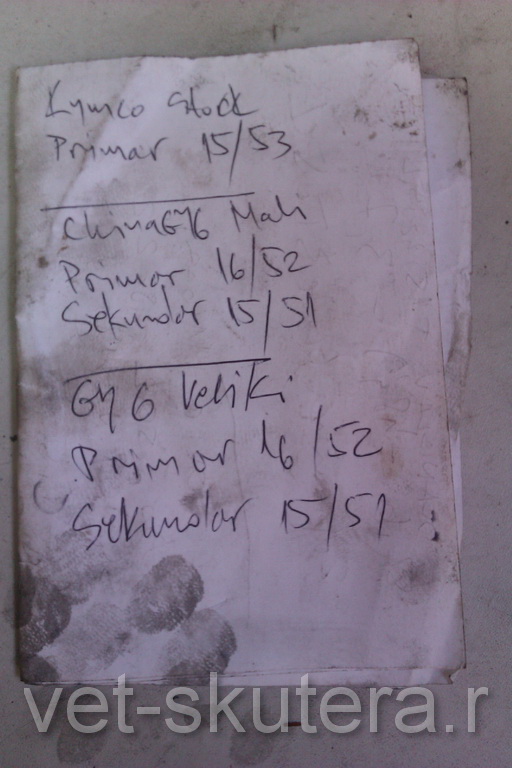 Kymco Stock
Primar 15/53
ChinaGY6 Mali
Primar 16/52
Sekundar 15/51
GY6 Veliki
Primar 16/52
Sekundar 15/51
vet-skutera.r